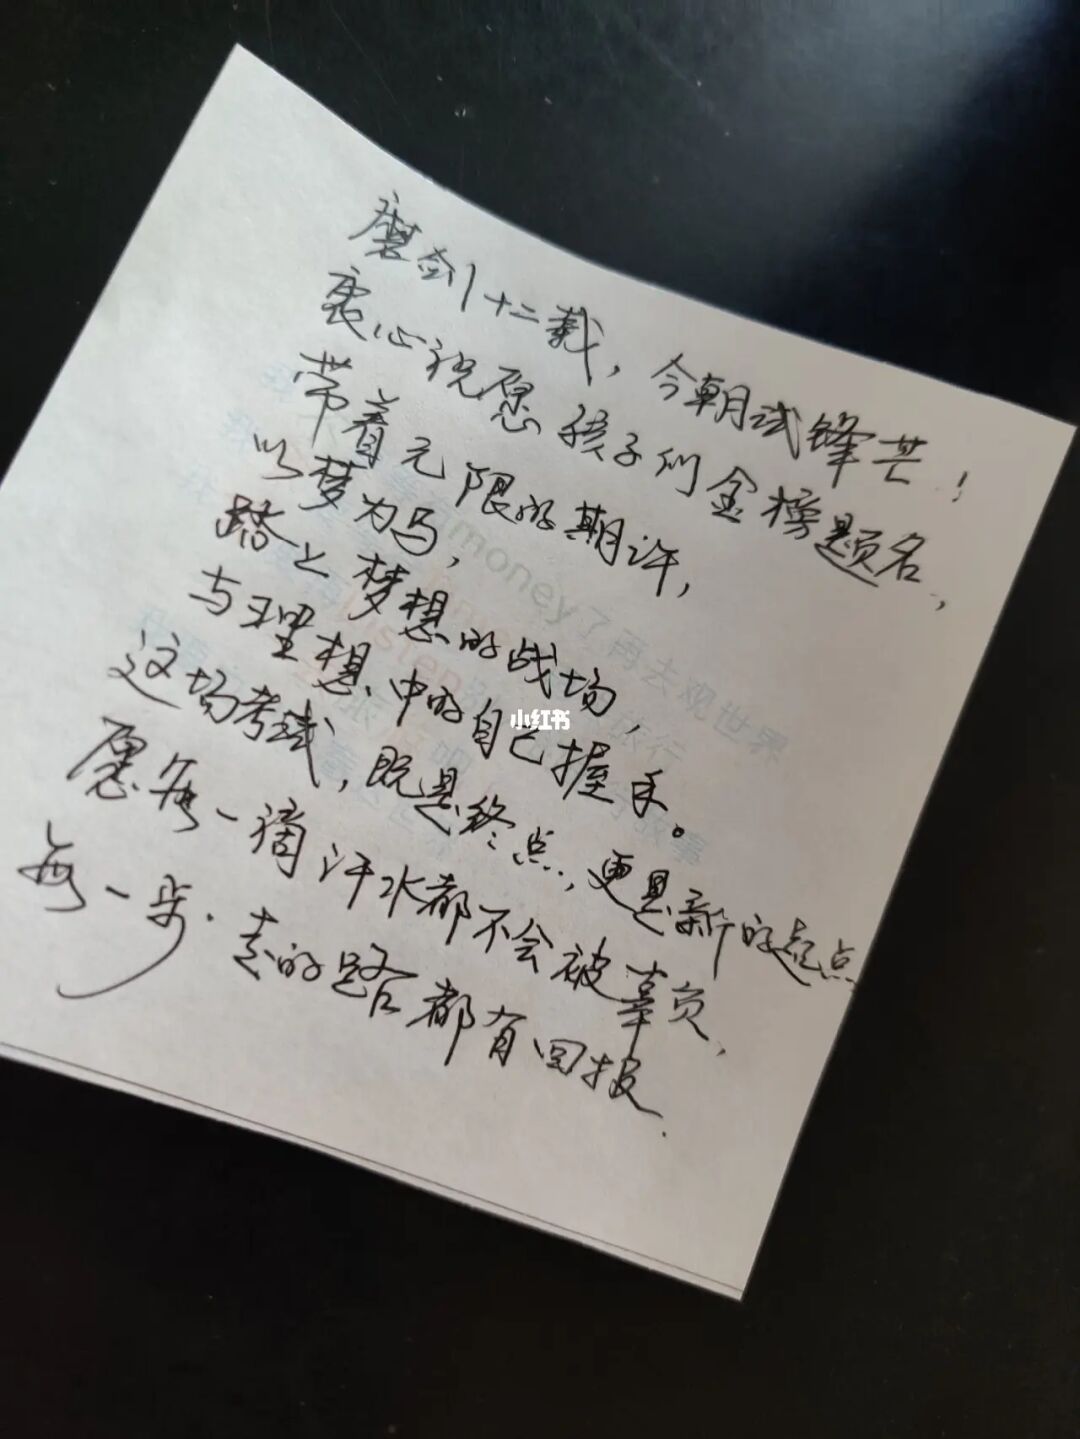 磨剑十二载，今朝试锋芒！
衷心祝愿孩子们金榜题名，
带着无限的期许，
以梦为马，
踏上梦想的战场，
与理想中的自己握手。
这场考试，既是终点，更是新的起点
愿每一滴汗水都不会被辜负，
每一步．走的路都有回报．
小红书
money了再去观世界
旅行
故事